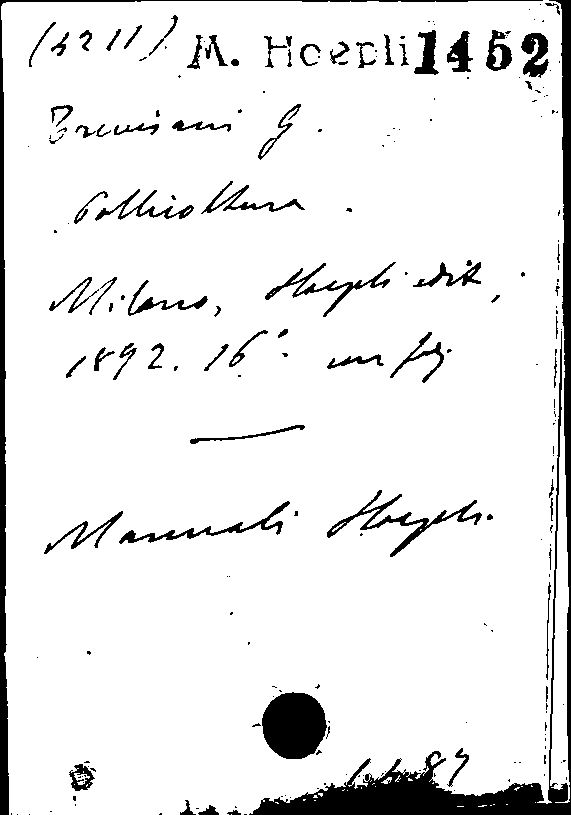 (4211) M. Hoepli 1452
Trevisani G.
Pollicoltura.
Milano, Hoepli edit,
1892. 16°. con fig
Manuali Hoepli.